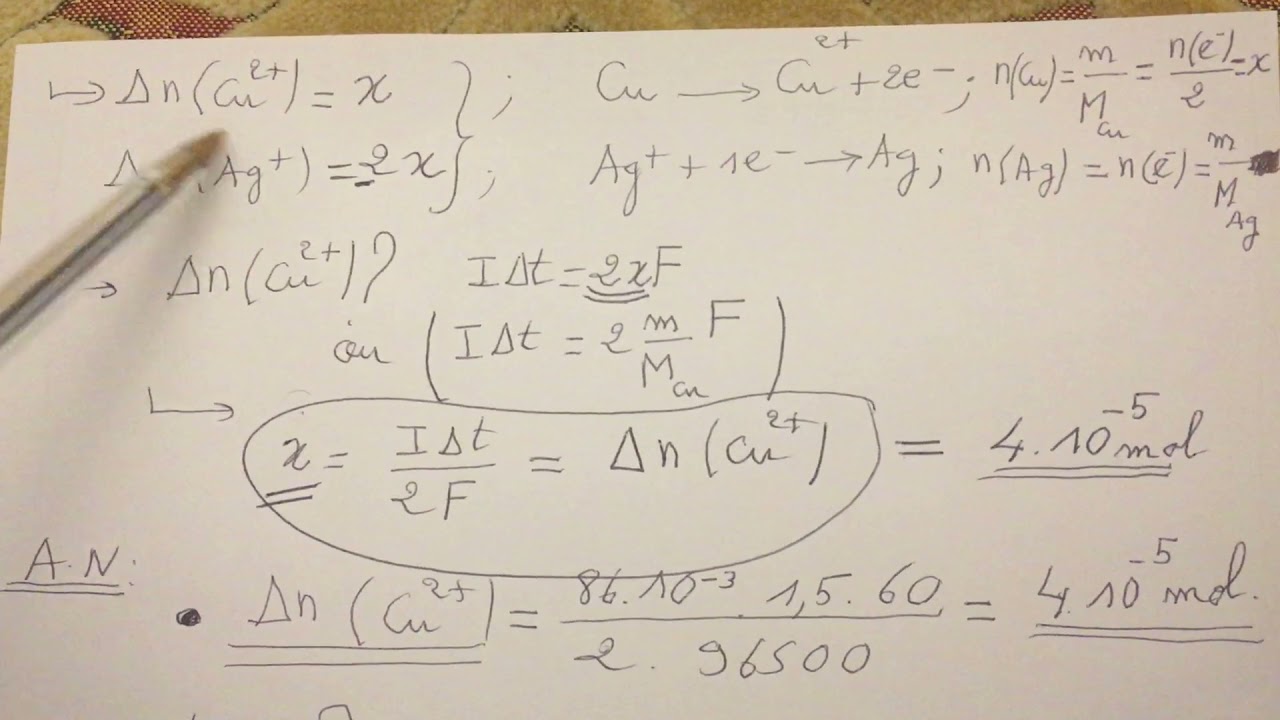 ↳ Δn(Cu²⁺) = x } ; Cu → Cu²⁺ + 2e⁻ ; n(Cu) = m/M_Cu = n(e⁻)/2 = x
Δ (Ag⁺) = -2x } ; Ag⁺ + 1e⁻ → Ag ; n(Ag) = n(e⁻) = m/M_Ag
→ Δn(Cu²⁺)? IΔt = 2xF
ou (IΔt = 2 m/M_Cu F)
↳ x = IΔt/2F = Δn(Cu²⁺) = 4.10⁻⁵ mol
A.N:
• Δn(Cu²⁺) = 86.10⁻³ 1,5.60 / 2. 96500 = 4.10⁻⁵ mol.